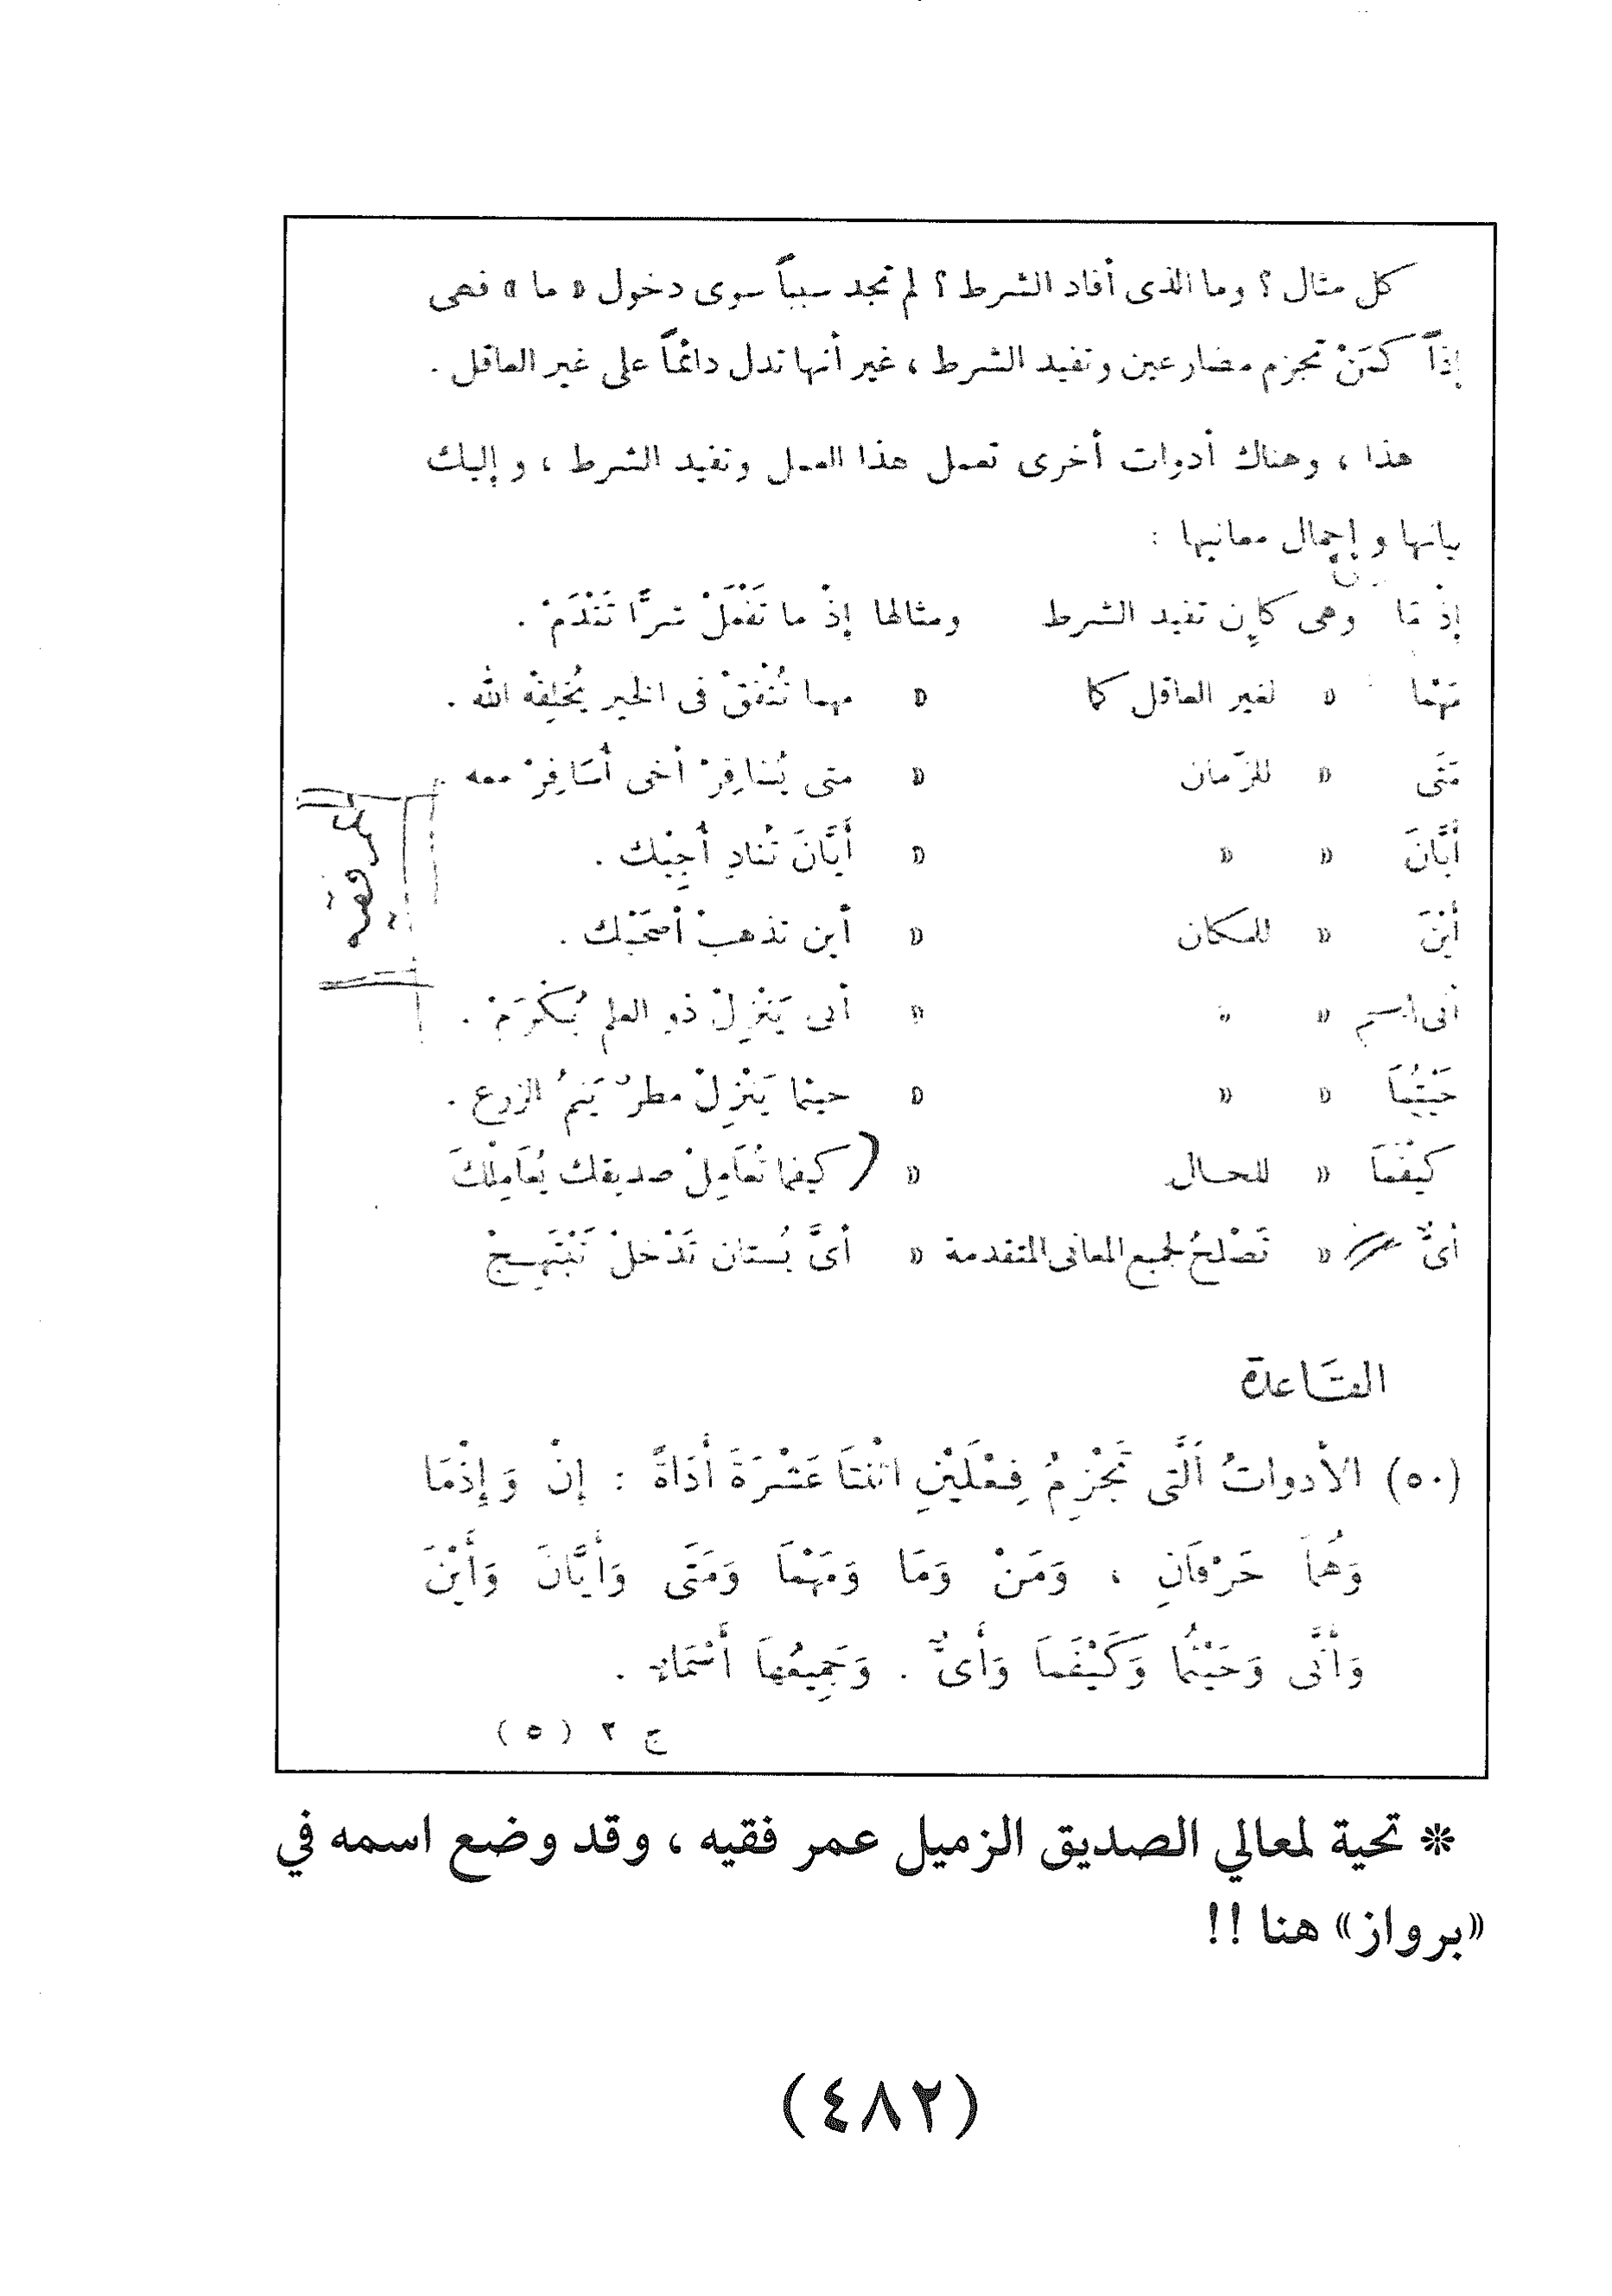 كل مثال ؟ وما الذى أفاد الشرط ؟ لم تجد سبباً سوى دخول « ما » فهى
إذاً كمَنْ تجزم مضارعين وتفيد الشرط ، غير أنها تدل دائماً على غير العاقل .
هذا ، وهناك أدوات أخرى تعمل هذا العمل وتفيد الشرط ، وإليك
بيانها وإجمال معانيها :
إذْ مَا وهى كإن تفيد الشرط ومثالها إذْ ما تَفْعَلْ شرًّا تَنْدَمْ .
مَهْمَا » لغير العاقل كما » مهما تُنْفِقْ فى الخير يُخْلِفْه الله .
مَتَى » للزّمان » متى يُسَافِرْ أخى أُسَافِرْ معه .
أَيَّانَ » » » أَيَّانَ تُنَادِ أُجِبْك .
أَيْنَ » للمكان » أين تذهبْ أصحَبْك .
أنى اسم » » » أنى يَنْزِلْ ذو العلم يُكْرَمْ .
حَيْثُمَا » » » حيثما يَنْزِلْ مطرٌ يَنمُ الزرع .
كَيْفَمَا » للحال » ( كيفما تُعَامِلْ صديقك يُعَامِلْكَ
أىُّ » تَصْلحُ لجميع المعانى المتقدمة » أىَّ بُستان تَدْخُلْ تَبْتَهِجْ
عمر فقيه
القَاعدة
(٥٠) الأدواتُ اَلَّتى تَجْزِمُ فِعْلَيْنِ اثْنَتَا عَشْرَةَ أَدَاةً : إِنْ وَإِذْمَا
وَهُمَا حَرْفَانِ ، وَمَنْ وَمَا وَمَهْمَا وَمَتَى وَأَيَّانَ وَأَيْنَ
وَأَنَّى وَحَيْثُمَا وَكَيْفَمَا وَأَىٌّ . وَجَمِيعُهَا أَسْمَاءٌ .
ج ٢ (٥)
* تحية لمعالي الصديق الزميل عمر فقيه ، وقد وضع اسمه في
«برواز» هنا !!
(٤٨٢)